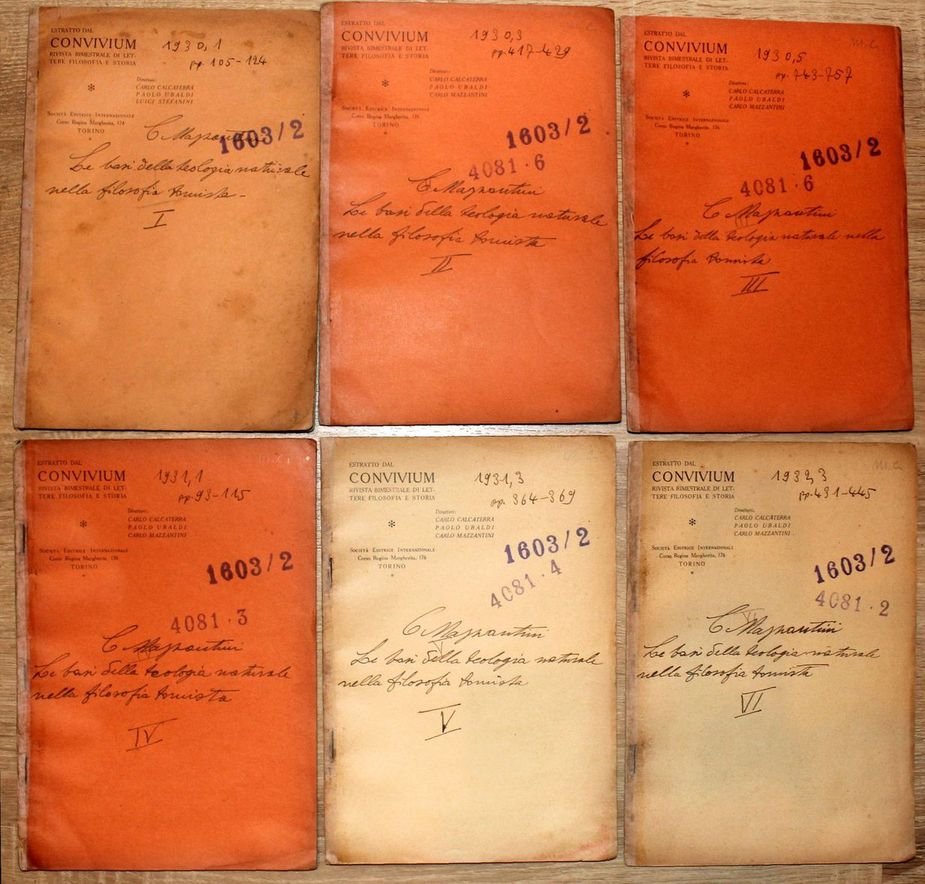 ESTRATTO DAL
CONVIVIUM
RIVISTA BIMESTRALE DI LET-
TERE FILOSOFIA E STORIA
1930,1
pp. 105-124
*
Direttori:
CARLO CALCATERRA
PAOLO UBALDI
LUIGI STEFANINI
SOCIETÀ EDITRICE INTERNAZIONALE
Corso Regina Margherita, 176
TORINO
C. Mazzantini
1603/2
Le basi della teologia naturale
nella filosofia tomista -
I
ESTRATTO DAL
CONVIVIUM
RIVISTA BIMESTRALE DI LET-
TERE FILOSOFIA E STORIA
1930,3
pp. 417-429
*
Direttori:
CARLO CALCATERRA
PAOLO UBALDI
CARLO MAZZANTINI
SOCIETÀ EDITRICE INTERNAZIONALE
Corso Regina Margherita, 176
TORINO
1603/2
4081·6
C. Mazzantini
Le basi della teologia naturale
nella filosofia tomista
II
ESTRATTO DAL
CONVIVIUM
RIVISTA BIMESTRALE DI LET-
TERE FILOSOFIA E STORIA
1930,5
pp. 743-757
*
Direttori:
CARLO CALCATERRA
PAOLO UBALDI
CARLO MAZZANTINI
SOCIETÀ EDITRICE INTERNAZIONALE
Corso Regina Margherita, 176
TORINO
1603/2
4081·6
C. Mazzantini
Le basi della teologia naturale nella
filosofia tomista
III
ESTRATTO DAL
CONVIVIUM
RIVISTA BIMESTRALE DI LET-
TERE FILOSOFIA E STORIA
1931,1
pp. 93-115
*
Direttori:
CARLO CALCATERRA
PAOLO UBALDI
CARLO MAZZANTINI
SOCIETÀ EDITRICE INTERNAZIONALE
Corso Regina Margherita, 176
TORINO
1603/2
4081·3
C. Mazzantini
Le basi della teologia naturale
nella filosofia tomista
IV
ESTRATTO DAL
CONVIVIUM
RIVISTA BIMESTRALE DI LET-
TERE FILOSOFIA E STORIA
1931,3
pp. 364-369
*
Direttori:
CARLO CALCATERRA
PAOLO UBALDI
CARLO MAZZANTINI
SOCIETÀ EDITRICE INTERNAZIONALE
Corso Regina Margherita, 176
TORINO
1603/2
4081·4
C. Mazzantini
Le basi della teologia naturale
nella filosofia tomista
V
ESTRATTO DAL
CONVIVIUM
RIVISTA BIMESTRALE DI LET-
TERE FILOSOFIA E STORIA
pp. 431-445
*
Direttori:
CARLO CALCATERRA
PAOLO UBALDI
CARLO MAZZANTINI
SOCIETÀ EDITRICE INTERNAZIONALE
Corso Regina Margherita, 176
TORINO
1603/2
4081·2
C. Mazzantini
Le basi della teologia naturale
nella filosofia tomista
VI